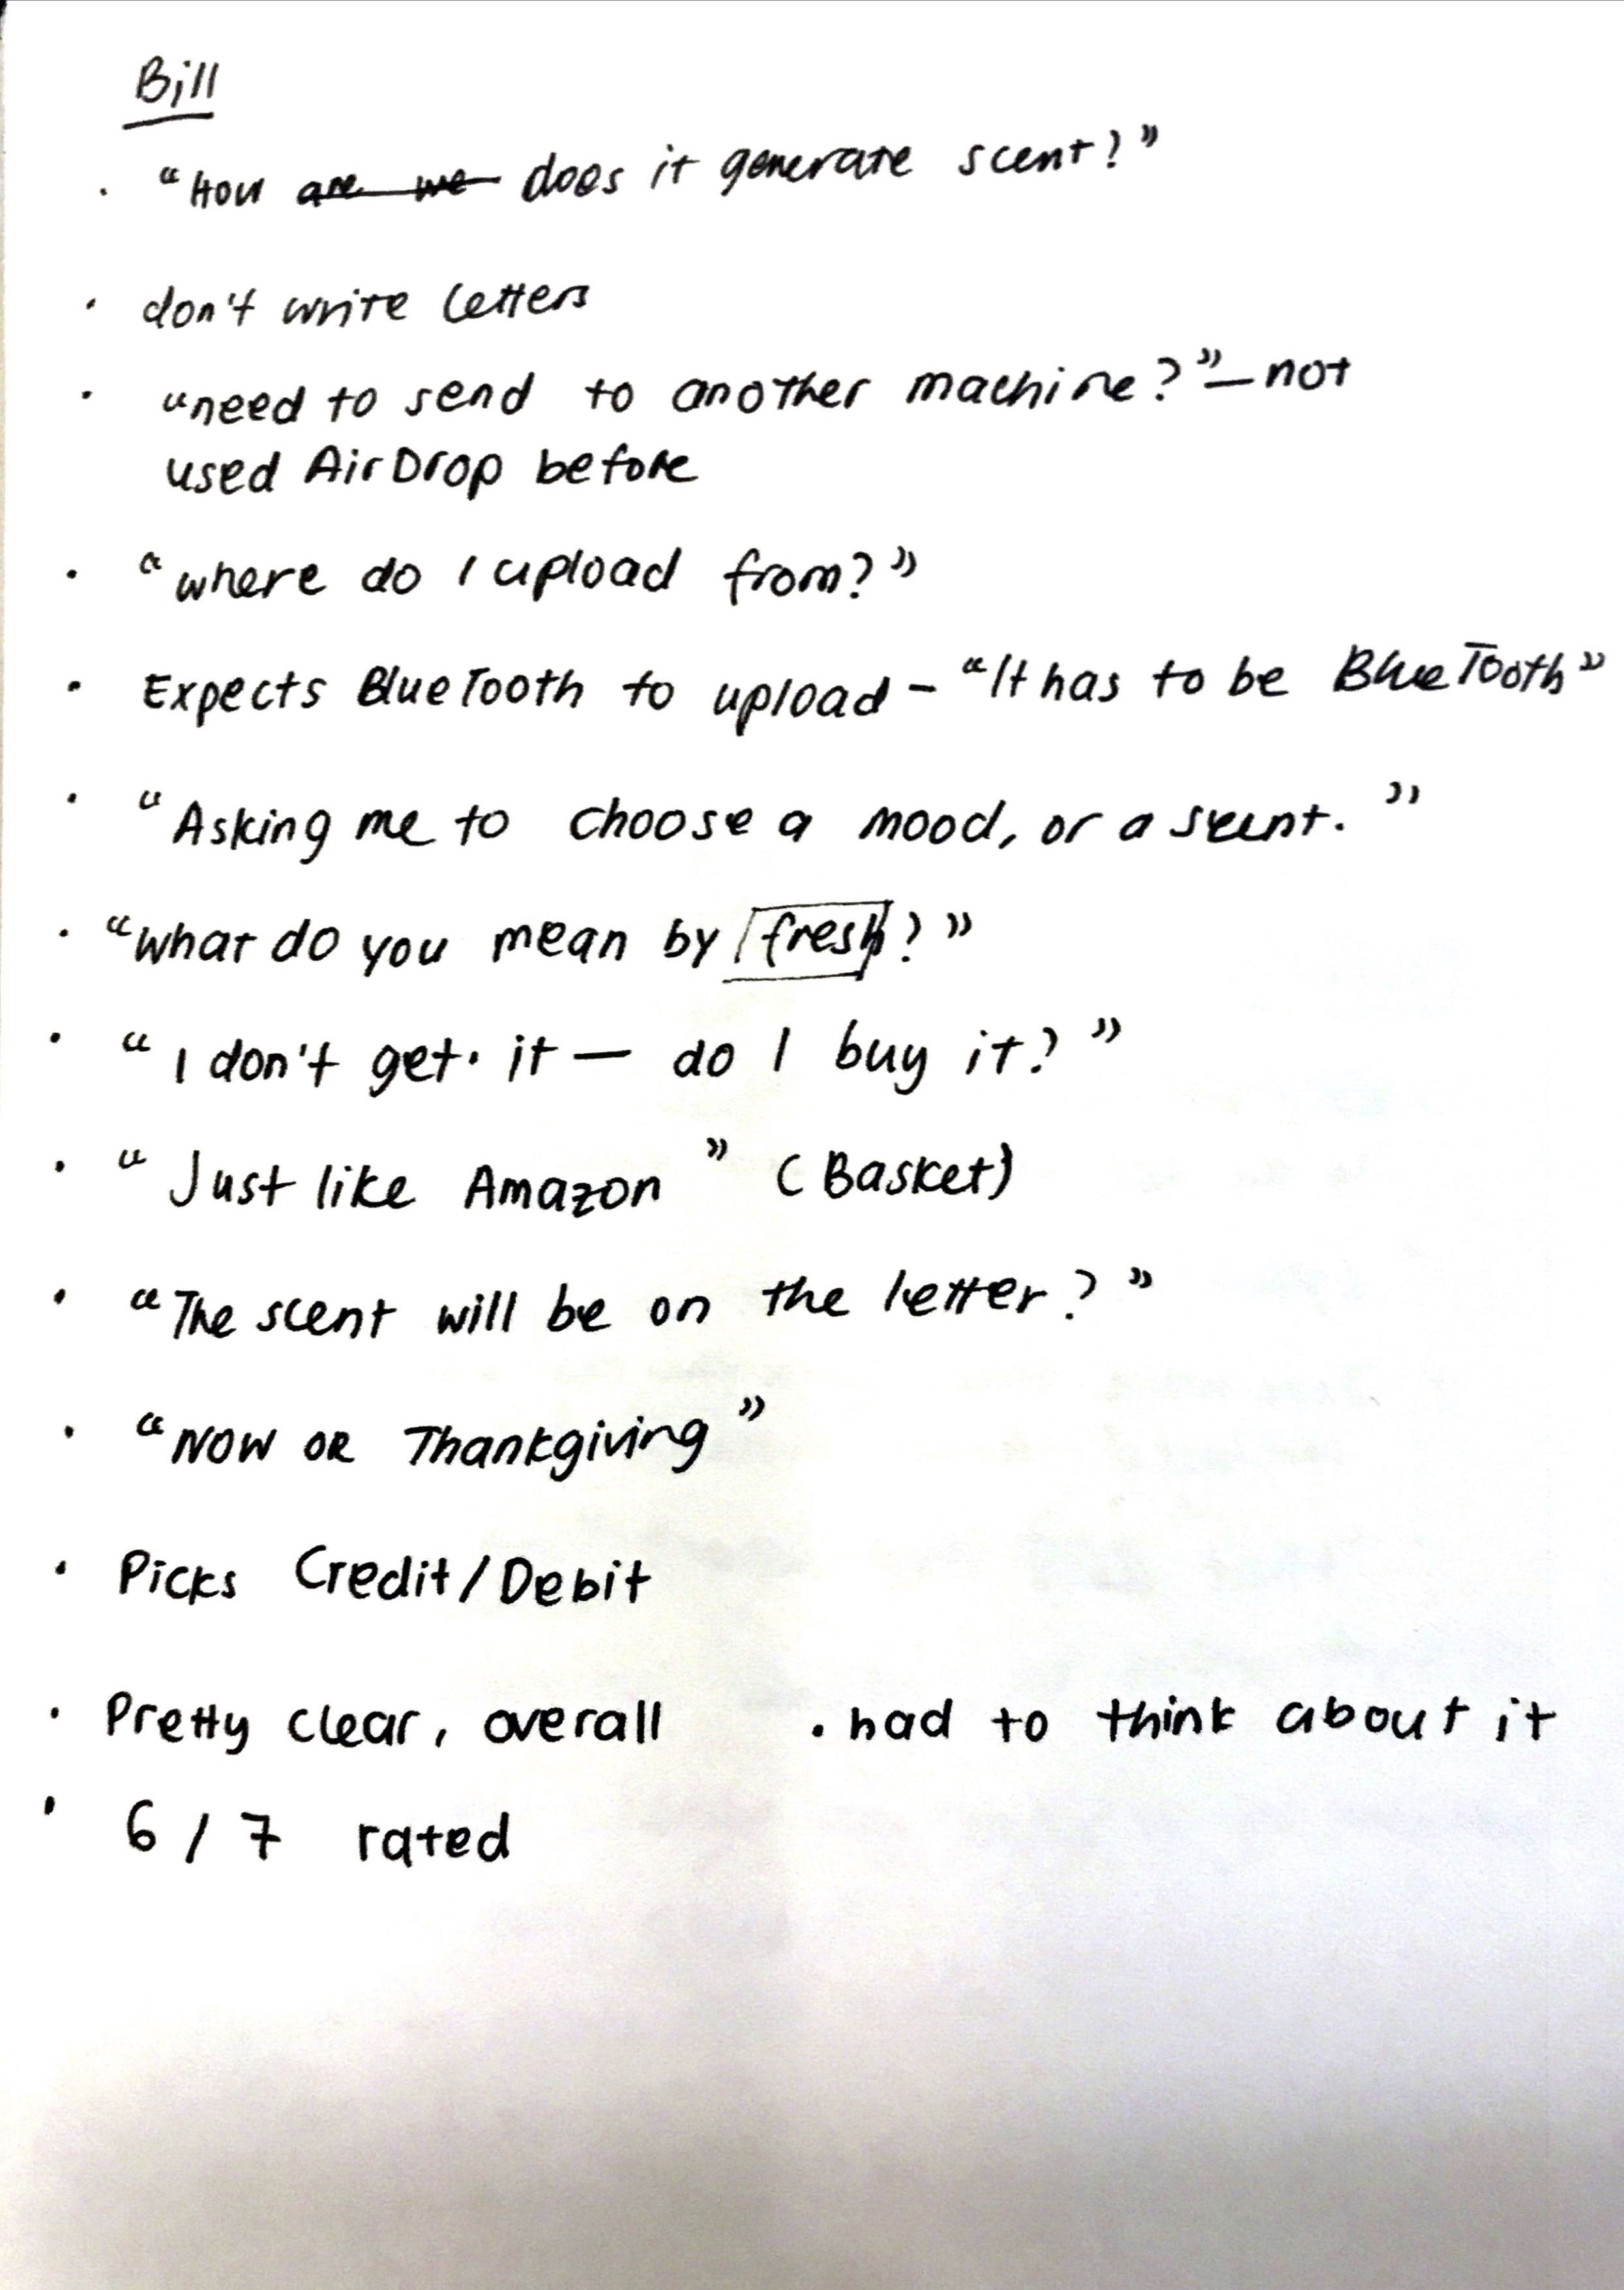 Bill
· "How are we does it generate scent?"
· don't write letters
· "need to send to another machine?" — not
used AirDrop before
· "where do I upload from?"
· Expects BlueTooth to upload - "It has to be BlueTooth"
· "Asking me to choose a mood, or a scent."
· "What do you mean by fresh?"
· "I don't get it — do I buy it?"
· "Just like Amazon" (Basket)
· "The scent will be on the letter?"
· "NOW OR Thankgiving"
· Picks Credit/Debit
· Pretty clear, overall · had to think about it
· 6/7 rated